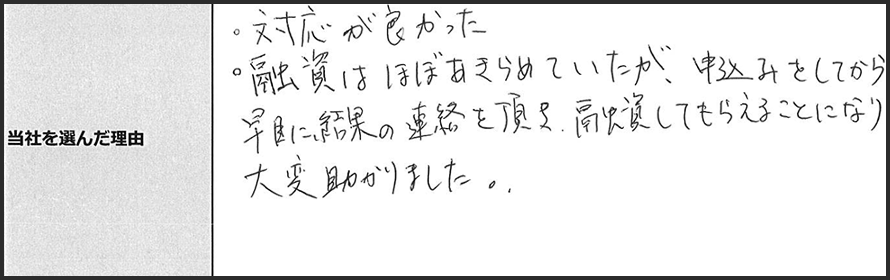 当社を選んだ理由
。対応が良かった
。融資はほぼあきらめていたが、申込みをしてから
早目に結果の連絡を頂き、融資してもらえることになり
大変助かりました。